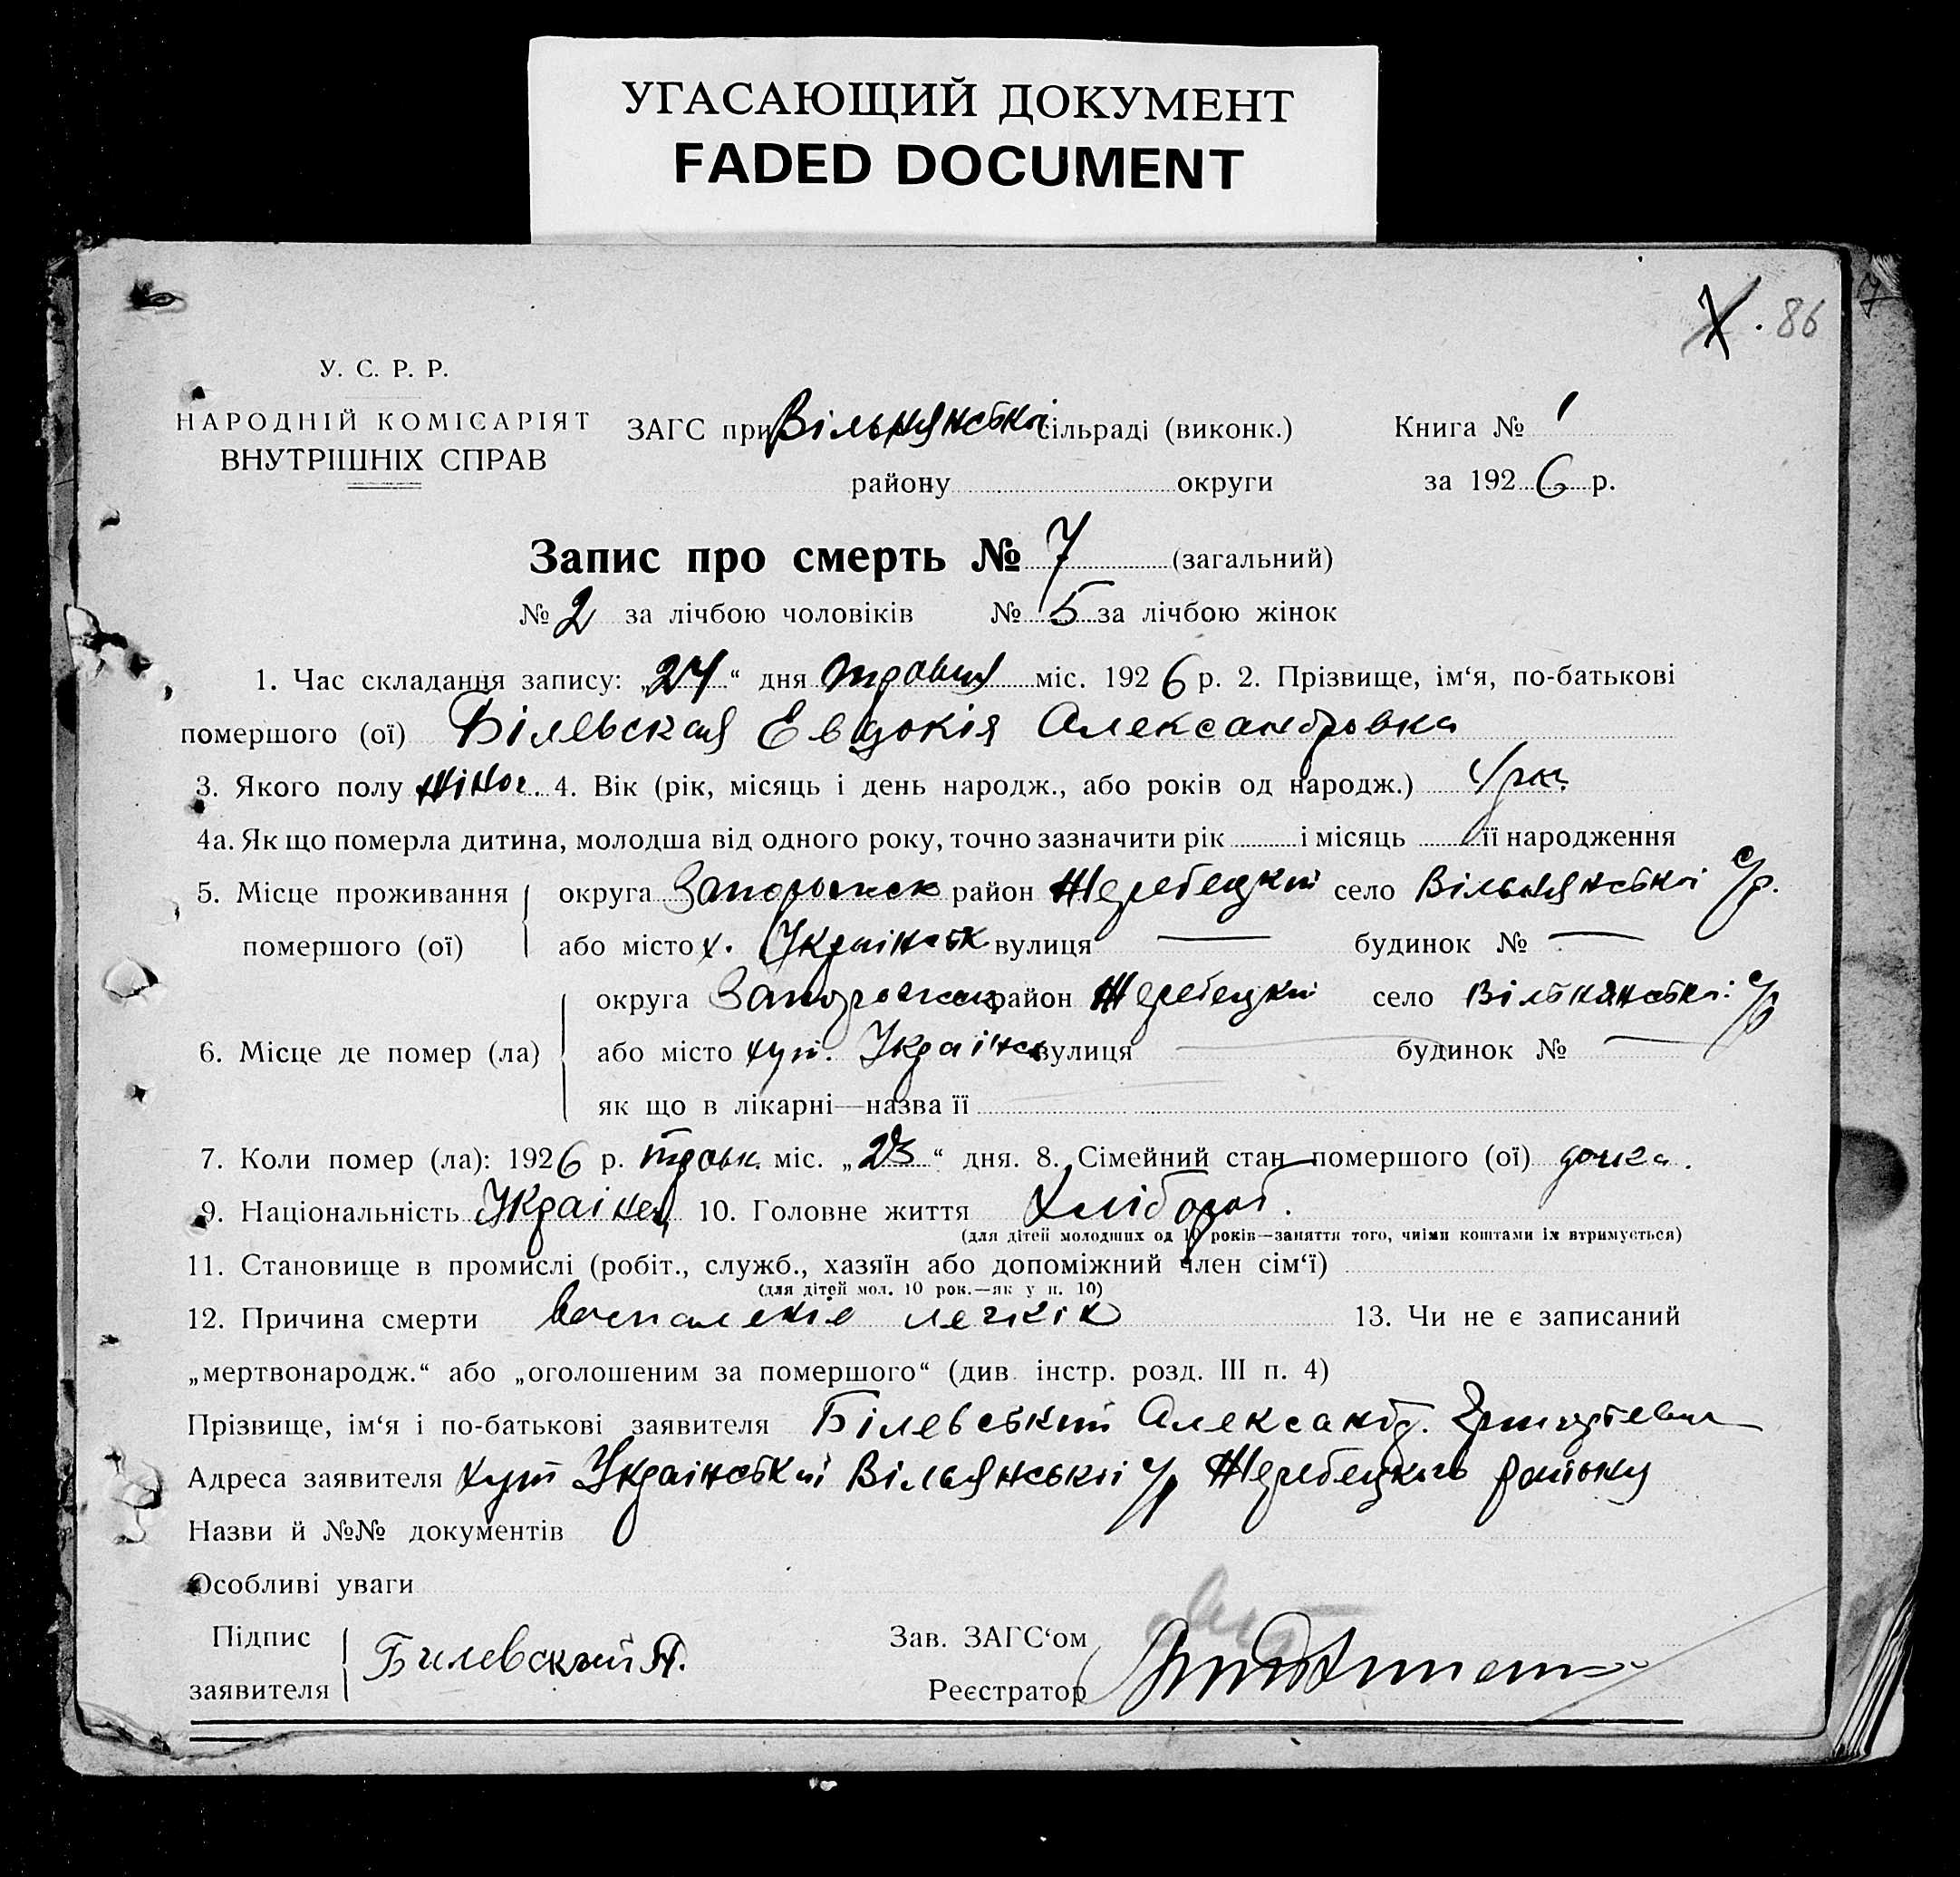 УГАСАЮЩИЙ ДОКУМЕНТ
FADED DOCUMENT
7. 86
У. С. Р. Р.
НАРОДНІЙ КОМІСАРІЯТ
ВНУТРІШНІХ СПРАВ
ЗАГС при Вільнянській сільраді (виконк.)
району округи
Книга № 1
за 1926 р.
Запис про смерть № 7 (загальний)
№ 2 за лічбою чоловіків № 5 за лічбою жінок
1. Час складання запису: „24“ дня травня міс. 1926 р. 2. Прізвище, ім‘я, по-батькові
помершого (ої) Білевская Евдокія Александровна
3. Якого полу жіноч. 4. Вік (рік, місяць і день народж., або років од народж.)
4а. Як що померла дитина, молодша від одного року, точно зазначити рік і місяць її народження
5. Місце проживання помершого (ої) округа Запорожск район Жеребецкий село Вільнянської с/р.
або місто х. Українськ вулиця — будинок № —
6. Місце де помер (ла) округа район Жеребецкий село Вільнянської с/р
або місто хут. Українськ вулиця — будинок № —
як що в лікарні—назва її
7. Коли помер (ла): 1926 р. травн. міс. „23“ дня. 8. Сімейний стан помершого (ої) дочка.
9. Національність 10. Головне життя Хлібороб.
(для дітей молодших од 10 років—заняття того, чиїми коштами їх втримується)
11. Становище в промислі (робіт., служб., хазяїн або допоміжний член сім‘ї)
(для дітей мол. 10 рок.—як у п. 10)
12. Причина смерти воспаленіе легкіх 13. Чи не є записаний
„мертвонародж.“ або „оголошеним за помершого“ (див. інстр. розд. III п. 4)
Прізвище, ім‘я і по-батькові заявителя Білевський Александр. Григорьевич
Адреса заявителя хут Український Вільянської с/р Жеребецкого району
Назви й №№ документів
Особливі уваги
Підпис заявителя Билевский А.
Зав. ЗАГС‘ом
Реєстратор